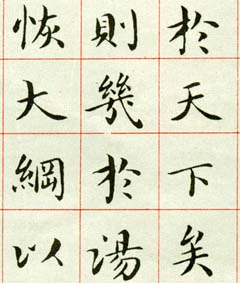 於天下矣
則幾於湯
恢大綱以